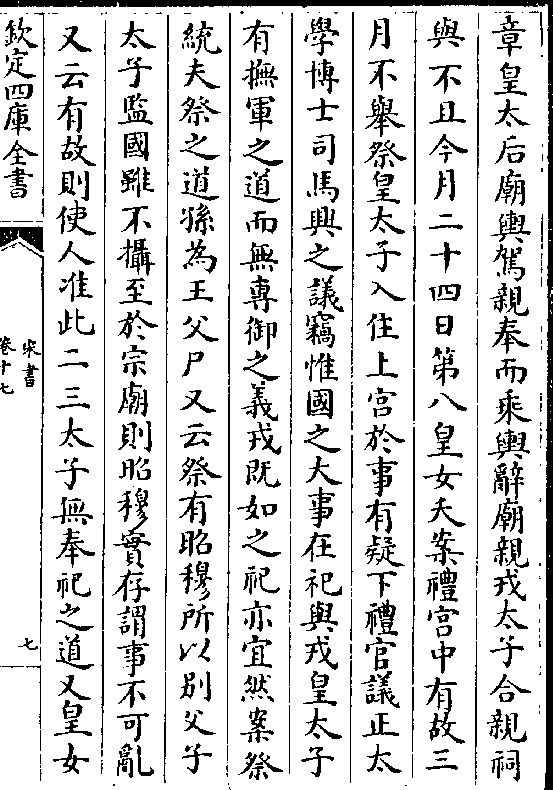 章皇太后廟輿駕親奉而乘輿辭廟親戎太子合親祠
與不且今月二十四日第八皇女夭案禮宮中有故三
月不舉祭皇太子入住上宮於事有疑下禮官議正太
學博士司馬興之議竊惟國之大事在祀與戎皇太子
有撫軍之道而無專御之義戎既如之祀亦宜然案祭
統夫祭之道孫為王父尸又云祭有昭穆所以別父子
太子監國雖不攝至於宗廟則昭穆實存謂事不可亂
又云有故則使人准此二三太子無奉祀之道又皇女
欽定四庫全書
宋書
卷十七
七